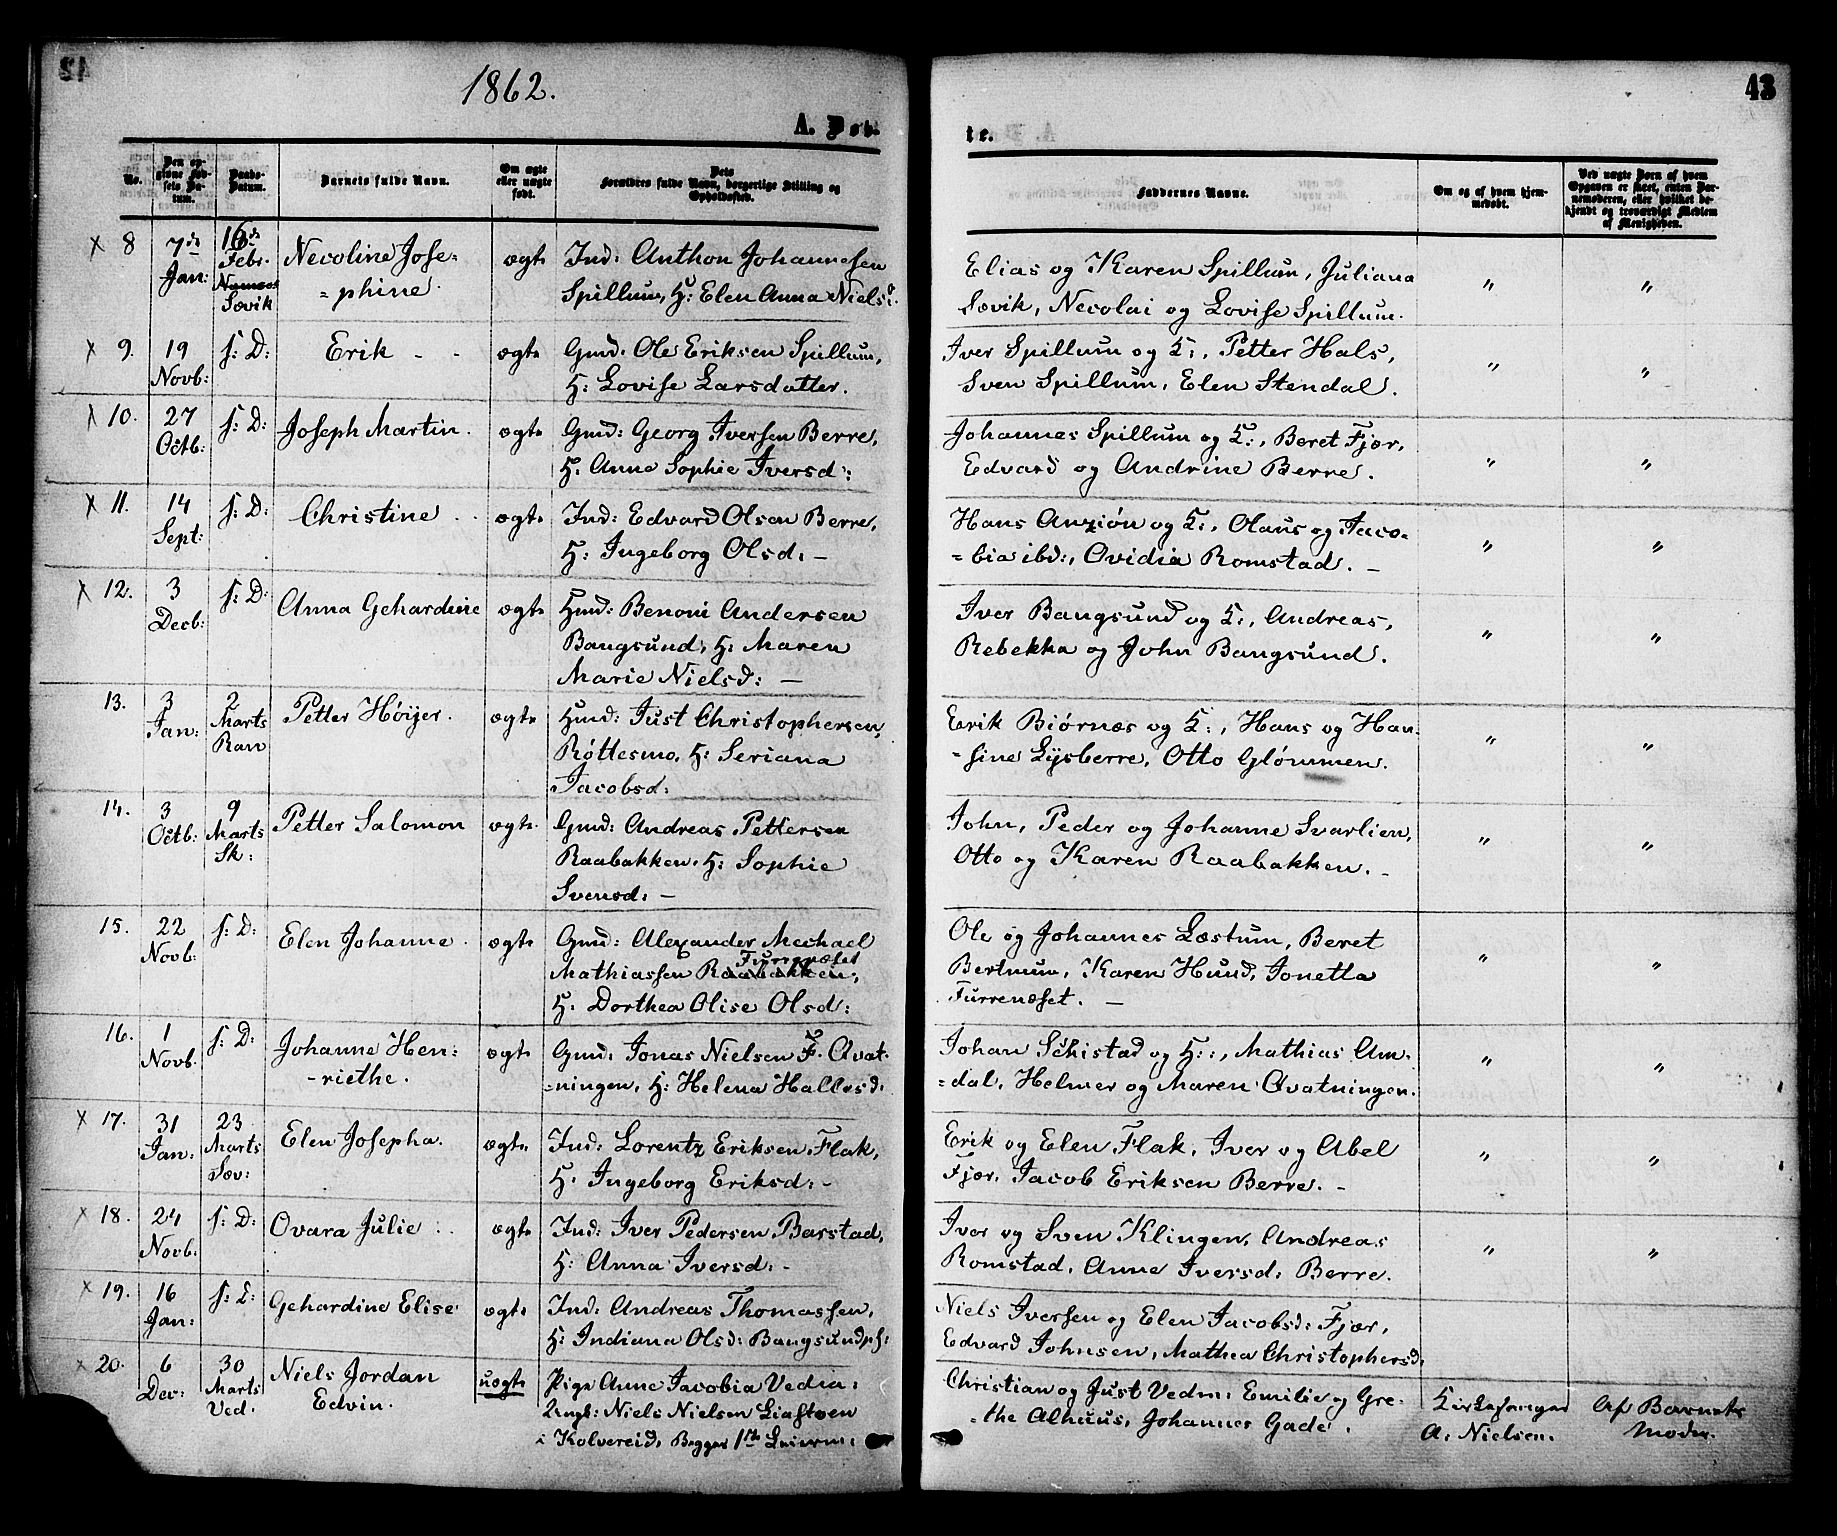 1862.
43
A. Døb-
te.
No.
Den opgivne Fødsels Datum.
Daabs-Datum.
Barnets fulde Navn.
Om ægte eller uægte født.
Dets Forældres fulde Navn, borgerlige Stilling og Opholdssted.
Faddernes Navne.
Om og af hvem hjemmedøbt.
Ved uægte Børn af hvem Opgaven er skeet, enten Barnemoderen, eller hvilket bekjendt og troværdigt Medlem af Menigheden.
× 8 7de Jan: 16de Febr. Sævik Necoline Jose=
=phine. ægte Ind: Anthon Johannesen
Spillum, H: Elen Anna Nielsd. Elias og Karen Spillum, Juliana
Sævik, Necolai og Lovise Spillum. " "
× 9. 19 Novb: s: D: Erik - - ægte Gmd: Ole Eriksen Spillum,
H: Lovise Larsdatter. Iver Spillum og K:, Petter Hals,
Sven Spillum, Elen Stendal. " "
× 10. 27 Octb: s: D: Joseph Martin. ægte Gmd: Georg Iversen Berre,
H: Anne Sophie Iversd: Johannes Spillum og K:, Beret Fjær,
Edvard og Andrine Berre. " "
× 11. 14 Sept: s: D: Christine . . ægte Ind: Edvard Olsen Berre,
H: Ingeborg Olsd: - Hans Anziøn og K:, Olaus og Jaco=
=bia ibd:, Ovidia Romstad. - " "
× 12. 3 Decb: s: D: Anna Gehardine ægte Hmd: Benoni Andersen
Bangsund, H: Maren
Marie Nielsd: - Iver Bangsund og K:, Andreas,
Rebekka og John Bangsund. " "
13. 3 Jan: 2 Marts Ran Petter Höijer. ægte Hmd: Just Christophersen,
Røttesmo, H: Seriana
Jacobsd: Erik Biørnes og K:, Hans og Han=
=sine Lysberre, Otto Glømmen. " "
14. 3 Octb: 9 Marts Sk: Petter Salomon ægte. Gmd: Andreas Pettersen
Raabakken. H: Sophie
Svensd: - John, Peder og Johanne Svarlien,
Otto og Karen Raabakken. - " "
15. 22 Novb: s: D: Elen Johanne. ægte Gmd: Alexander Mechael
Mathiassen Raabakken, Furrenæset
H: Dorthea Olise Olsd: Ole og Johannes Læstum, Beret
Bertnum, Karen Hund, Jonetta
Furrenæset. - " "
16. 1 Novb. s: D: Johanne Hen=
-riethe. ægte Gmd: Jonas Nielsen F. Avat-
=ningen, H: Helena Hallesd. Johan Schistad og H:, Mathias Am=
=dal, Helmer og Maren Avatningen. " "
× 17. 31 Jan: 23 Marts Sæv: Elen Josepha. ægte. Ind: Lorentz Eriksen Flak,
H: Ingeborg Eriksd: - Erik og Elen Flak, Iver og Abel
Fjær, Jacob Eriksen Berre. - " "
× 18. 24 Novb. s: D: Ovara Julie . . ægte Ind: Iver Pedersen Barstad,
H: Anna Iversd: - Iver og Sven Klingen, Andreas
Romstad, Anne Iversd: Berre. " "
× 19. 16 Jan: s: D: Gehardine Elise ægte Ind: Andreas Thomassen,
H: Indiana Olsd: Bangsundpl: Niels Iversen og Elen Jacobsd: Fjær,
Edvard Johnsen, Mathea Christophersd.
× 20. 6 Dec: 30 Marts Ved. Niels Jordan
Edvin. uægte Pige Anne Jacobia Vedin:
Ungk: Niels Nielsen
i Kolvereid, Begges 1ste Leierm: Christian og Just Vedin: Emilie og Gre=
=the Alhuus, Johannes Gade.
A: Nielsen. Af Barnets
Moder.